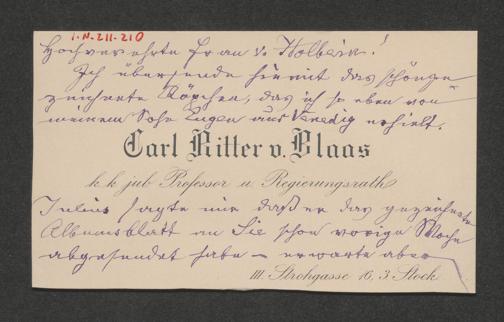 I.N. 211.210
Hochverehrte Frau v. Holbein!
Ich übersende hiermit das schönge-
zeichnete Köpchen, das ich so eben von
meinem Sohn Eugen aus Venedig erhielt.
Carl Ritter v. Blaas
k. k. jub. Professor u. Regierungsrath
Julius sagte mir daß er das gezeichnete
Albumsblatt an Sie schon vorige Woche
abgesendet habe – erwarte aber
III. Strohgasse 16, 3. Stock